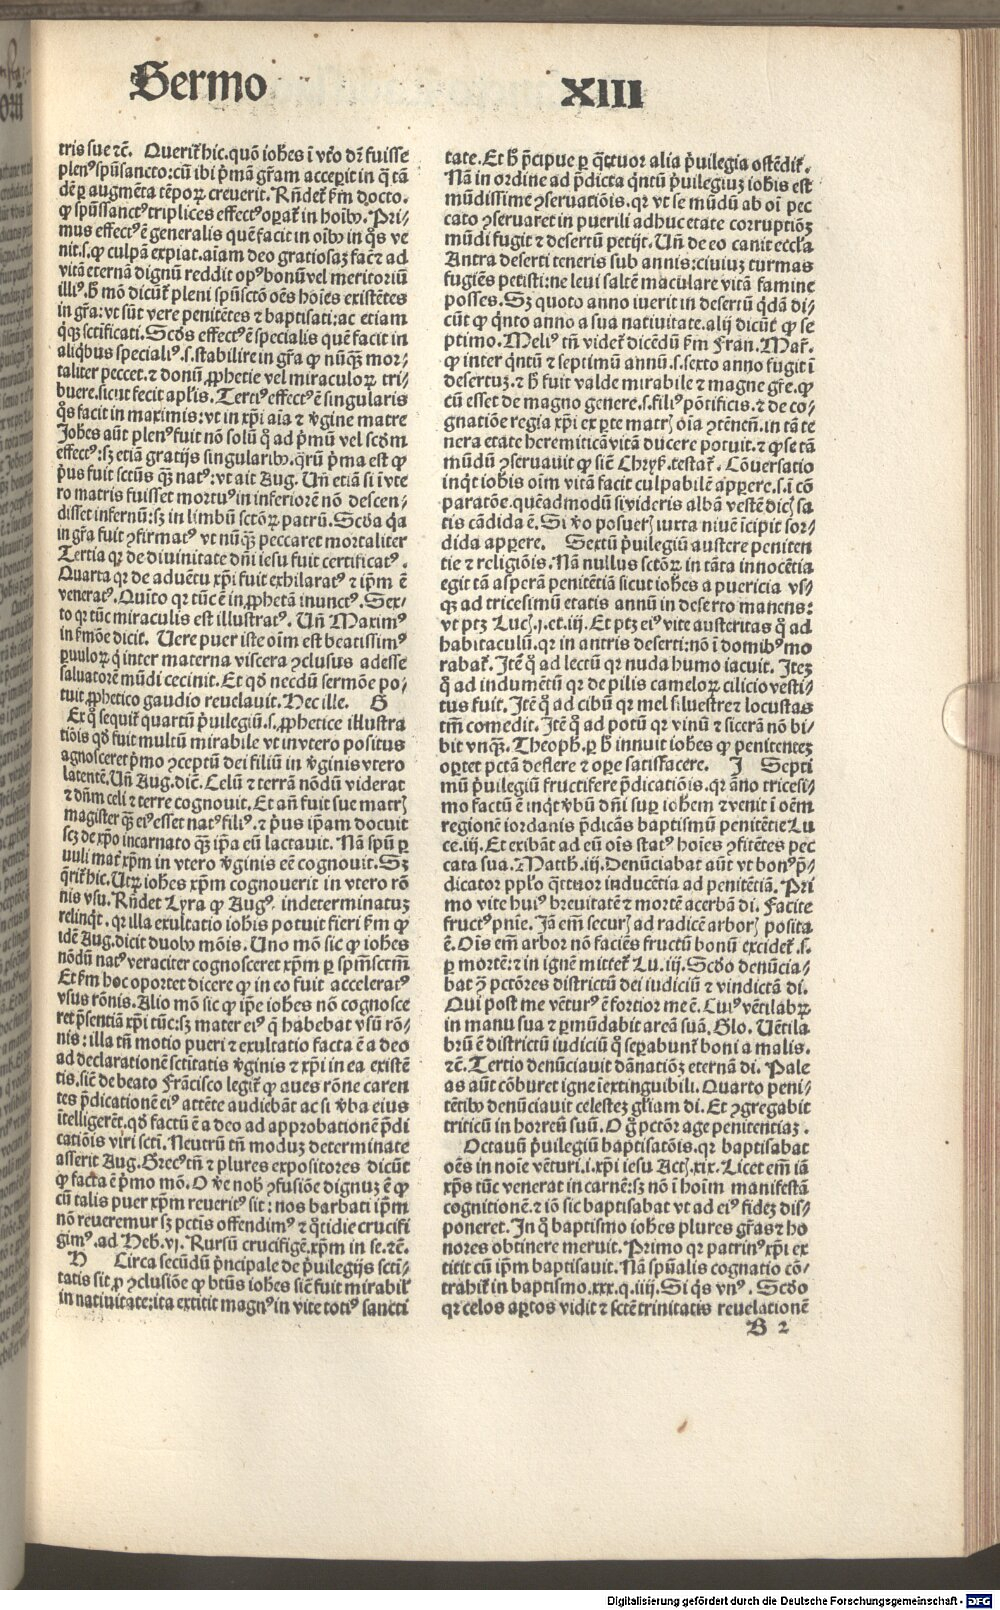 Sermo XIII
tris sue ⁊c̄. Querit̄ hic. quō iohes ī vt̄o dr̄ fuisse
plenꝰ spūsancto: cū ibi p̄mā gr̄am acceperit in q̄ tā
dē ꝑ augmēta tēporꝝ creuerit. Rn̄det̄ ẜm docto.
ꝙ spūssanctꝰ triplices effectꝰ operat̄ in hoībꝰ. Pri⸗
mus effectꝰ ē generalis quē facit in oībꝰ in q̊s ve
nit. s. ꝙ culpā expiat. aīam deo gratiosaꝫ facit ⁊ ad
vitā eternā dignū reddit opꝰ bonū vel meritoriū
illiꝰ. h̄ mō dicūt̄ pleni spūsctō oēs hoīes existētes
in gr̄a: vt sūt vere penitētes ⁊ baptisati: ac etiam
q̄qꝫ sctīficati. Scd̄s effectꝰ ē specialis quē facit in
aliqͥbus specialiꝰ. s. stabilire in gr̄a ꝙ nūqꝫ mor⸗
taliter peccet. ⁊ donū ꝓphetie vel miraculorꝝ tri⸗
buere. sicut fecit apl̄is. Tertiꝰ effectꝰ ē singularis
q̊s facit in maximis: vt in xp̄i aīa ⁊ v̄gine matre
Johes aūt plenꝰ fuit nō solū q̊ ad p̄mū vel scd̄m
effectꝰ: sꝫ etiā gratijs singularibꝰ. qͣrū p̄ma est ꝙ
pͥus fuit sctūs qꝫ natꝰ: vt ait Aug. Un̄ etiā si ī vte
ro matris fuisset mortuꝰ in inferiorē nō descen⸗
disset infernū: sꝫ in limbū sctōꝝ patrū. Scd̄a qͥa
in gr̄a fuit ꝯfirmatꝰ vt nūqꝫ peccaret mortaliter
Tertia qꝛ de diuinitate dn̄i iesu fuit certificatꝰ.
Quarta qꝛ de aduētu xp̄i fuit exhilaratꝰ ⁊ ip̄m ē
veneratꝰ. Quīto qꝛ tūc ē in ꝓphetā inunctꝰ. Sex⸗
to qꝛ tūc miraculis est illustratꝰ. Un̄ Maximꝰ
in ẜmōe dicit. Uere puer iste oīm est beatissimꝰ
ꝑuulorꝝ qͥ inter materna viscera ꝯclusus adesse
saluatorē mūdi cecinit. Et qd̄ necdū sermōe po⸗
tuit ꝓphetico gaudio reuelauit. Hec ille. G
Ex q̊ sequit̄ quartū pͥuilegiū. s. ꝓphetice illustra
tiōis qd̄ fuit multū mirabile vt in vtero positus
agnosceret pͥmo ꝯceptū dei filiū in v̄ginis vtero
latentē. Un̄ Aug. dic̄. Celū ⁊ terrā nōdū viderat
⁊ dn̄m celi ⁊ terre cognouit. Et an̄ fuit sue matrꝭ
magister qꝫ eiꝰ esset natꝰ filiꝰ. ⁊ pͥus ip̄am docuit
scꝫ de xp̄o incarnato qꝫ ip̄a eū lactauit. Nā spū ꝑ
uuli mat̄ xp̄m in vtero v̄ginis eē cognouit. Sꝫ
q̄rit̄ hic. Utrꝝ iohes xp̄m cognouerit in vtero rō
nis vsu. Rn̄det Lyra ꝙ Augꝰ. indeterminatuꝫ
relinqͥt. qꝛ illa exultatio iohis potuit fieri ẜm ꝙ
idē Aug. dicit duobꝰ mōis. Uno mō sic ꝙ iohes
nōdū natꝰ veraciter cognosceret xp̄m ꝑ spm̄sctm̄
Et ẜm hoc oportet dicere ꝙ in eo fuit acceleratꝰ
vsus rōnis. Alio mō sic ꝙ ip̄e iohes nō cognosce
ret p̄sentiā xp̄i tūc: sꝫ mater eiꝰ q̄ habebat vsū rō⸗
nis: illa tn̄ motio pueri ⁊ exultatio facta ē a deo
ad declarationē sctītatis v̄ginis ⁊ xp̄i in ea existē
tis. sic̄ de beato Frācisco legit̄ ꝙ aues rōne caren
tes p̄dicationē eiꝰ attēte audiebāt ac si v̄ba eius
ītelligerēt. qd̄ factū ē a deo ad approbationē p̄di
catiōis viri sctī. Neutrū tn̄ moduꝫ determinate
asserit Aug. Grecꝰ tn̄ ⁊ plures expositores dicūt
ꝙ facta ē pͥmo mō. O v̄e nobꝭ ꝯfusiōe dignuꝫ ē ꝙ
cū talis puer xp̄m reueritꝰ sit: nos barbati ip̄m
nō reueremur sꝫ pctīs offendimꝰ ⁊ qͦtidie crucifi
gimꝰ. ad Heb. vi. Rursū crucifigē. xp̄m in se. ⁊c̄.
H Circa secūdū pͥncipale de pͥuilegijs sctī⸗
tatis sit ꝓ ꝯclusiōe ꝙ btūs iohes sic̄ fuit mirabil̄
in natiuitate: ita extitit magnꝰ in vite totiꝰ sancti
tate. Et h̄ p̄cipue ꝑ q̄ttuor alia pͥuilegia ostēdit̄.
Nā in ordine ad p̄dicta qͥntū pͥuilegiuꝫ iohis est
mūdissime ꝯseruatiōis. qꝛ vt se mūdū ab oī pec
cato ꝯseruaret in puerili adhuc etate corruptiōꝫ
mūdi fugit ⁊ desertū petijt. Un̄ de eo canit eccl̄a
Antra deserti teneris sub annis: ciuiuꝫ turmas
fugiēs petisti: ne leui saltē maculare vitā famine
posses. Sꝫ quoto anno iuerit in desertū qͥdā di⸗
cūt ꝙ qͥnto anno a sua natiuitate. alij dicūt ꝙ se
ptimo. Meliꝰ tn̄ videt̄ dicēdū ẜm Fran. Mar̄.
ꝙ inter qͥntū ⁊ septimū annū. s. sexto anno fugit ī
desertuꝫ. ⁊ h̄ fuit valde mirabile ⁊ magne gr̄e. ꝙ
cū esset de magno genere. s. filiꝰ pōtificis. ⁊ de co⸗
gnatiōe regia xp̄i ex ꝑte matrꝭ oīa ꝯtēnen̄. in tā te
nera etate heremiticā vitā ducere potuit. ⁊ ꝙ se tā
mūdū ꝯseruauit ꝙ sic̄ Chrys̄. testat̄. Cōuersatio
inqͥt iohis oīm vitā facit culpabilē apꝑere. s. ī cō
paratōe. quēadmodū si videris albā vestē dicꝭ sa
tis cādida ē. Si v̄o posuerꝭ iuxta niuē īcipit sor⸗
dida apꝑere. Sextū pͥuilegiū austere peniten
tie ⁊ religiōis. Nā nullus sctōꝝ in tāta innocētia
egit tā asperā penitētiā sicut iohes a puericia vs⸗
qꝫ ad tricesimū etatis annū in deserto manens:
vt ptꝫ Lucꝭ. j. et. iij. Et ptꝫ eiꝰ vite austeritas q̊ ad
habitaculū. qꝛ in antris deserti: nō ī domibꝰ mo
rabat̄. Jtē q̊ ad lectū qꝛ nuda humo iacuit. Jteꝫ
q̊ ad indumētū qꝛ de pilis camelorꝝ cilicio vesti⸗
tus fuit. Jtē q̊ ad cibū qꝛ mel siluestre ⁊ locustas
tm̄ comedit. Jtē q̊ ad potū qꝛ vinū ⁊ sicerā nō bi⸗
bit vnqꝫ. Theoph̄. ꝑ h̄ innuit iohes ꝙ penitenteꝫ
oꝑtet pctā deflere ⁊ oꝑe satisfacere. J Septi
mū pͥuilegiū fructifere p̄dicatiōis. qꝛ āno tricesi⸗
mo factū ē inqͥt v̄bū dn̄i suꝑ iohem ⁊ venit ī oēm
regionē iordanis p̄dicās baptismū penitētie Lu
ce. iij. Et exibāt ad eū oīs statꝰ hoīes ꝯfitētes pec
cata sua. Matth. iij. Denūciabat aūt vt bonꝰ p̄⸗
dicator ppl̄o q̄ttuor inducētia ad penitētiā. Pri
mo vite huiꝰ breuitatē ⁊ mortē acerbā di. Facite
fructꝰ pnīe. Jā em̄ securꝭ ad radicē arborꝭ posita
ē. Oīs em̄ arbor nō faciēs fructū bonū excidet̄. s.
ꝑ mortē: ⁊ in ignē mittet̄ Lu. iij. Scd̄o denūcia⸗
bat ꝯ̄ pctōres districtū dei iudiciū ⁊ vindictā di.
Qui post me vēturꝰ ē fortior me ē. Cuiꝰ vētilabꝝ
in manu sua ⁊ ꝑmūdabit areā suā. Glo. Uētila
brū ē districtū iudiciū q̊ seꝑabunt̄ boni a malis.
⁊c̄. Tertio denūciauit dānatiōꝫ eternā di. Pale
as aūt cōburet igne īextinguibili. Quarto peni⸗
tētibꝰ denūciauit celesteꝫ gl̄iam di. Et ꝯgregabit
triticū in horreū suū. O gͦ pctōr age penitentiaꝫ.
Octauū pͥuilegiū baptisatōis. qꝛ baptisabat
oēs in noīe vēturi. i. xp̄i iesu Actꝭ. xix. Licet em̄ iā
xp̄s tūc venerat in carnē: sꝫ nō ī hoīm manifestā
cognitionē. ⁊ iō sic baptisabat vt ad eiꝰ fideꝫ dis⸗
poneret. Jn q̊ baptismo iohes plures gr̄as ⁊ ho
nores obtinere meruit. Primo qꝛ patrinꝰ xp̄i ex
titit cū ip̄m baptisauit. Nā spūalis cognatio cō⸗
trahit̄ in baptismo. xxx. q. iiij. Si qͥs vnꝰ. Scd̄o
qꝛ celos aꝑtos vidit ⁊ sctē trinitatis reuelationē
B 2
Digitalisierung gefördert durch die Deutsche Forschungsgemeinschaft - DFG